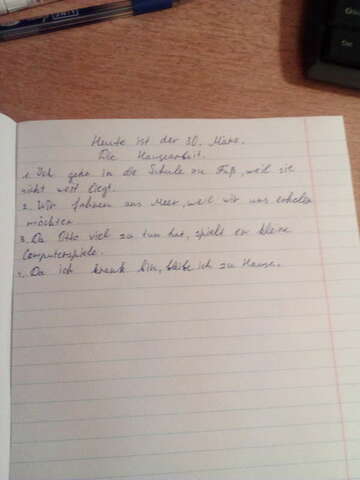 Heute ist der 30. März.
Die Hausarbeit.
1. Ich gehe in die Schule zu Fuß, weil sie
nicht weit liegt.
2. Wir fahren ans Meer, weil wir uns erholen
möchten.
3. Da Otto viel zu tun hat, spielt er keine
Computerspiele.
4. Da ich krank bin, bleibe ich zu Hause.